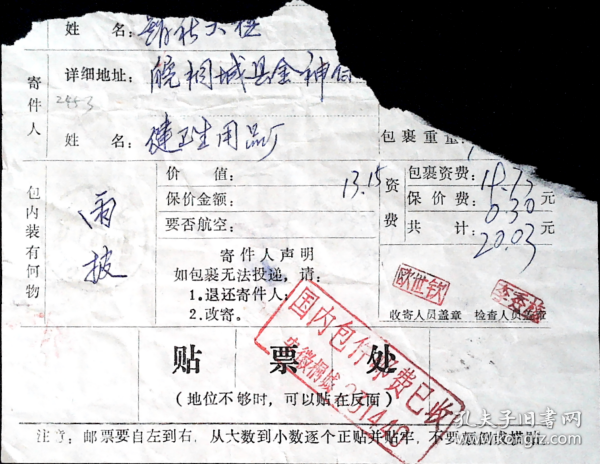 姓 名:
寄件人
详细地址: 皖桐城县金神
2453
姓 名: 健卫生用品厂
包裹重量:
包内装有何物
雨披
价 值:
保价金额: 13.15
要否航空:
资费
包裹资费:
保价费: 0.30 元
共 计: 20.03 元
寄件人声明
如包裹无法投递,请:
1.退还寄件人;
2.改寄。
欧世钦
收寄人员盖章 检查人员盖章
国内包件资费已收
安徽桐城 231440
贴 票 处
(地位不够时,可以贴在反面)
注意:邮票要自左到右,从大数到小数逐个正贴并贴牢,不要颠倒或横贴
孔夫子旧书网